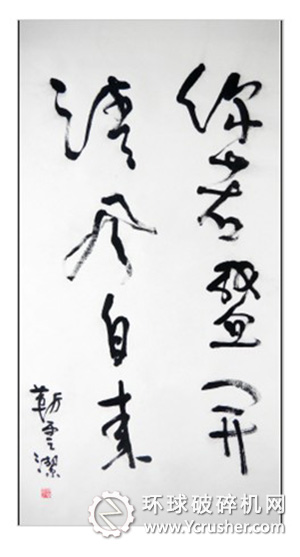 你若盛开
清风自来
环球破碎机网
Ycrusher.com